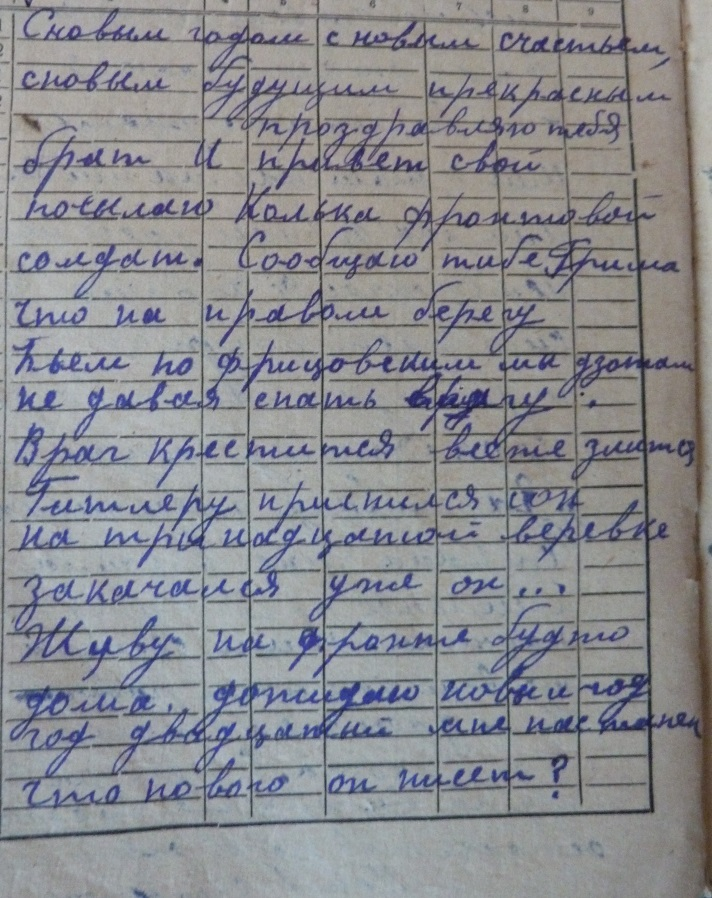 4 5 6 7 8 9
Сновым годом с новым счастьем,
сновым будущим прекрасным
проздравляю тебя
брат и привет свой
посылаю Колька фронтовой
солдат. Сообщаю тибе Грима
что на правом берегу
Бьем по фрицовским мы дзотам
не давая спать врагу.
Враг крестится всеже злится
Гитлеру приснился сон
на тринадцатой веревке
закачался уже он...
Живу на фронте будто
дома. дожидаю новый год
год двадцатый мне настанет
что нового он нисет?